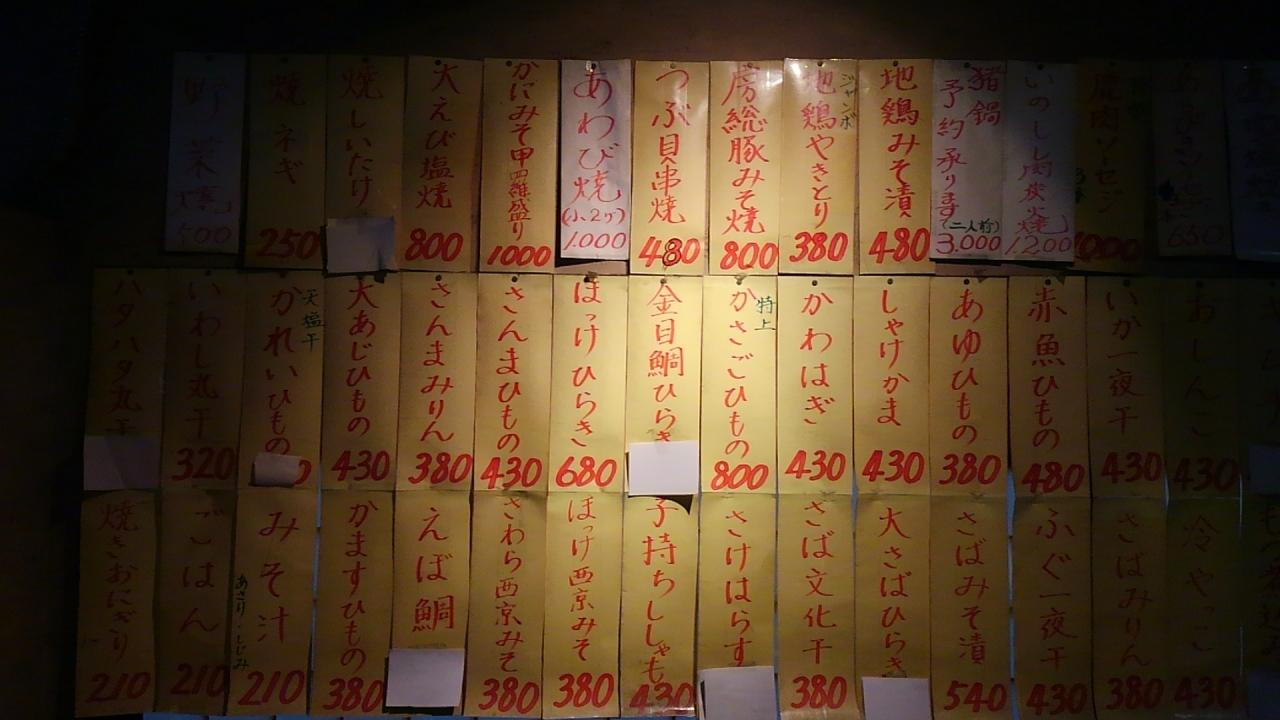 野菜焼 500
焼ネギ 250
焼しいたけ
大えび塩焼 800
かにみそ甲羅盛り 1000
あわび焼 (小2ケ) 1.000
つぶ貝串焼 480
房総豚みそ焼 800
ジャンボ
地鶏やきとり 380
地鶏みそ漬 480
猪鍋
予約承ります (二人前) 3.000
いのしし肉炭火焼 1.200
鹿肉ソーセージ 1000
650
ハタハタ丸干
いわし丸干 320
天塩干
かれいひもの
大あじひもの 430
さんまみりん 380
さんまひもの 430
ほっけひらき 680
金目鯛ひらき
特上
かさごひもの 800
かわはぎ 430
しゃけかま 430
あゆひもの 380
赤魚ひもの 480
いか一夜干 430
おしんこ 430
焼きおにぎり 210
ごはん 210
みそ汁 210
あさり・しじみ
かますひもの 380
えぼ鯛
さわら西京みそ 380
ほっけ西京みそ 380
子持ちししゃも 430
さけはらす
さば文化干 380
大さばひらき
さばみそ漬 540
ふぐ一夜干 430
さばみりん 380
冷やっこ 430